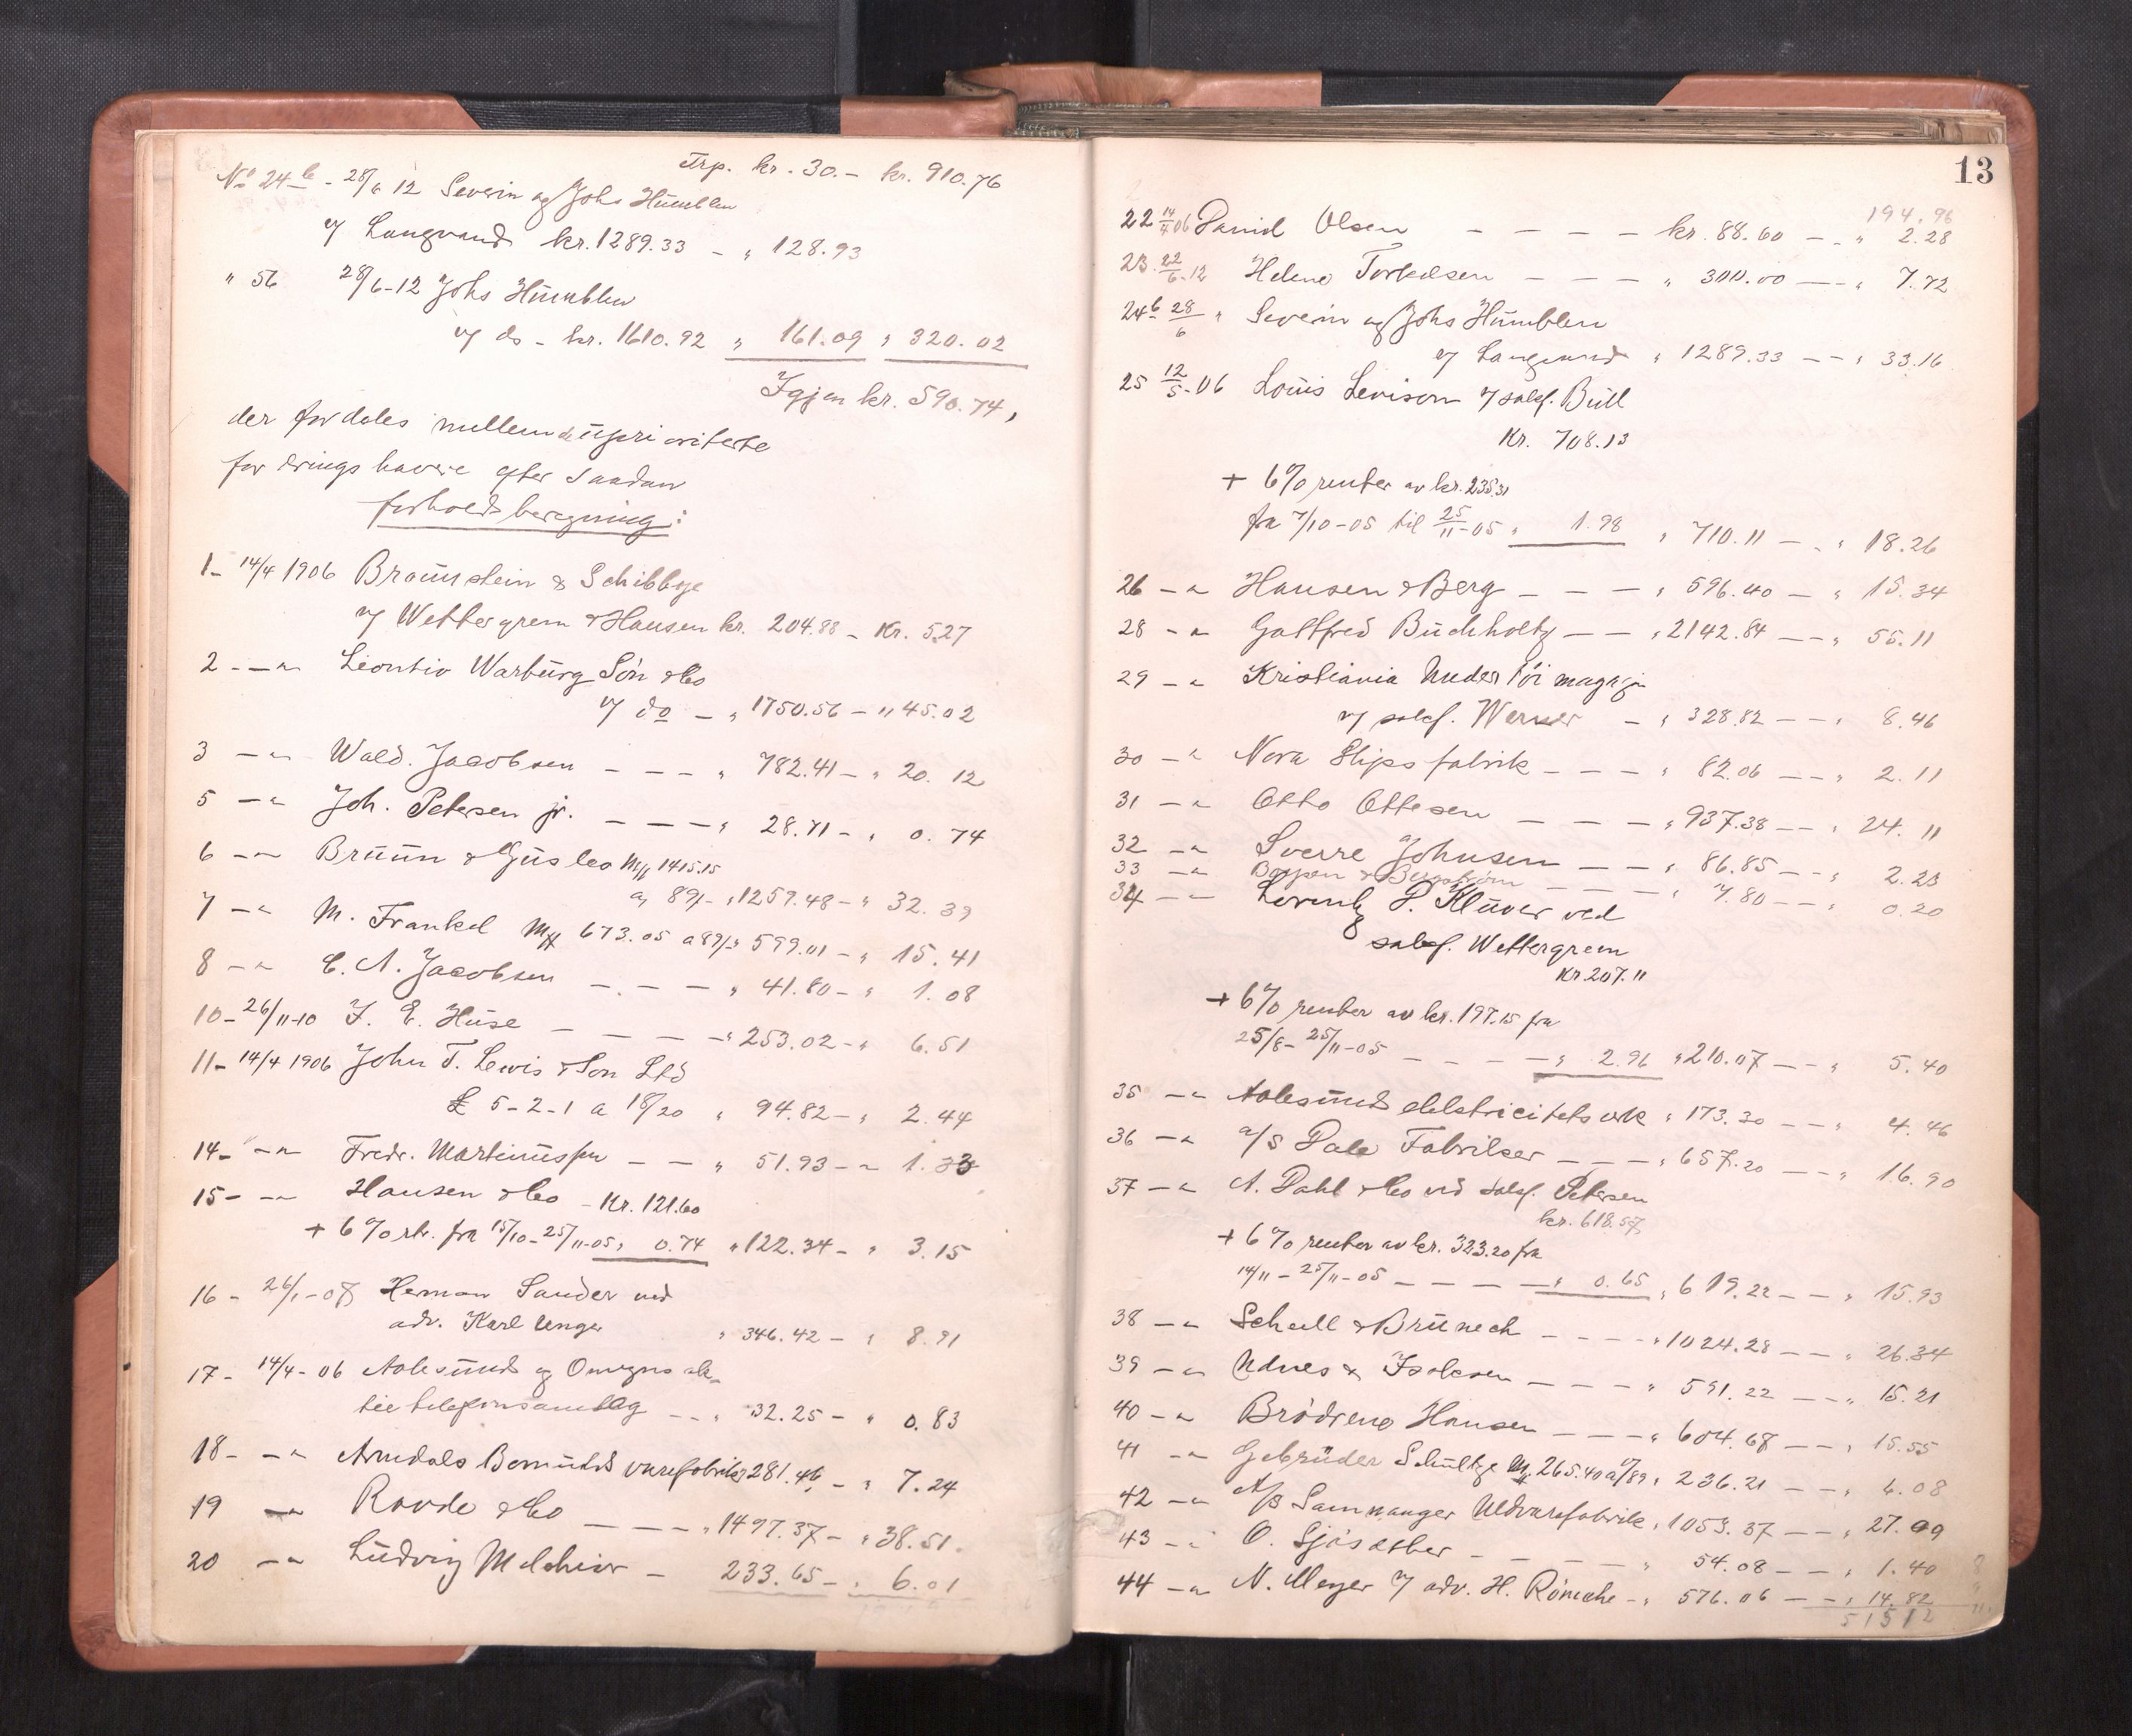 Trp. kr. 30.- kr. 910.76
No 24b - 28/6 12 Severin og Johs Humblen
v/ Langvand kr. 1289.33 - " 128.93
" 56 28/6-12 Johs Humblen
v/ do - kr. 1610.92 " 161.09 " 320.02
Igjen kr. 590.74,
der fordeles mellem de uprioriterte
fordringshavere efter saadan
forholdsberegning:
1- 14/4 1906 Braunstein & Schibbye
v/ Wettergren & Hansen kr. 204.88 - Kr. 5.27
2 - - " - Leontin Warburg Søn & Co
v/ do - " 1750.56 - " 45.02
3 - " - Wald. Jacobsen - - - " 782.41 - " 20.12
5 - " Joh. Petersen jr. - - - " 28.71 - " 0.74
6 - " - Bruun & Gusleo M 1415.15
a 89/- " 1259.48 - " 32.39
7 - " M. Frankel M 673.05 a 89/- " 599.01 - " 15.41
8 - " C. A. Jacobsen - - - " 41.80 - " 1.08
10 - 26/11-10 J. E. Huse - - - - " 253.02 - " 6.51
11 - 14/4 1906 John T. Lewis & Son Ltd
£ 5-2-1 a 18/20 " 94.82 - " 2.44
14 - " - " - Fredr. Martinussen - - " 51.93 - " 1.33
15 - - " - Hansen & Co - Kr. 121.60
+ 6% rtr. fra 15/10 - 25/11-05 " 0.74 " 122.34 - " 3.15
16 - 26/1-07 Herman Sander ved
adv. Karl Unger " 346.42 - " 8.91
17 - 14/4-06 Aalesunds og Omegns ak-
tietelefonsamlag - - " 32.25 - " 0.83
18 - - " Arndals Bomuldsvarefabriker 281.46 - " 7.24
19 - " Rovde & Co - - - " 1497.37 - " 38.51.
20 - " Ludvig Melchior - 233.65 - " 6.01
13
194.96
22 14/4 06 David Olsen - - - - kr. 88.60 - - " 2.28
23 22/6-12 Helene Torkelsen - - - " 300.00 - - " 7.72
24b 28/6 " Severin og Johs Humblen
v/ Langvand " 1289.33 - - " 33.16
25 12/5-06 Louis Levison v/ sakf. Bull
Kr. 708.13
+ 6% renter av kr. 235.31
fra 7/10-05 til 25/11-05 " 1.98 " 710.11 - - " 18.26
26 - " Hansen & Berg - - - " 596.40 - " 15.34
28 - " Gottfred Buchholtz - - " 2142.84 - - " 55.11
29 - " Kristiania Undertøimagazin
v/ sakf. Werner - " 328.82 - - " 8.46
30 - " Nora Slipsfabrik - - - " 82.06 - - " 2.11
31 - " Otto Ottesen - - - " 937.38 - - " 24.11
32 - " Sverre Johnsen - - " 86.85 - - " 2.23
33 - " Boysen & Bergstrøm - - - " 7.80 - - " 0.20
34 - " Lorentz P. Klüver ved
sakf. Wettergren
Kr. 207.11
+ 6% renter av kr. 197.15 fra
25/8 - 25/11-05 - - - - " 2.96 " 210.07 - - " 5.40
35 - " Aalesunds elektricitetsverk " 173.30 - - " 4.46
36 - " a/s Dale Fabriker - - - " 657.20 - - " 16.90
37 - " A. Dahl & Co ved sakf. Petersen
kr. 618.57
+ 6% renter av kr. 323.20 fra
14/11 - 25/11-05 - - - - " 0.65 " 619.22 - - " 15.93
38 - " Schull & Brunech - - - - " 1024.28 - - " 26.34
39 - " Udnes & Isaksen - - - " 591.22 - - " 15.21
40 - " Brødrene Hansen - - - " 604.68 - - " 15.55
41 - " Gebrüder Schultze M. 265.40 a 89 " 236.21 - - " 6.08
42 - " A/S Samnanger Uldvarefabrik " 1053.37 - - " 27.09
43 - " O. Sjøsæther - - - - " 54.08 - - " 1.40
44 - " N. Meyer v/ adv. H. Römcke - " 576.06 - - " 14.82
515 12